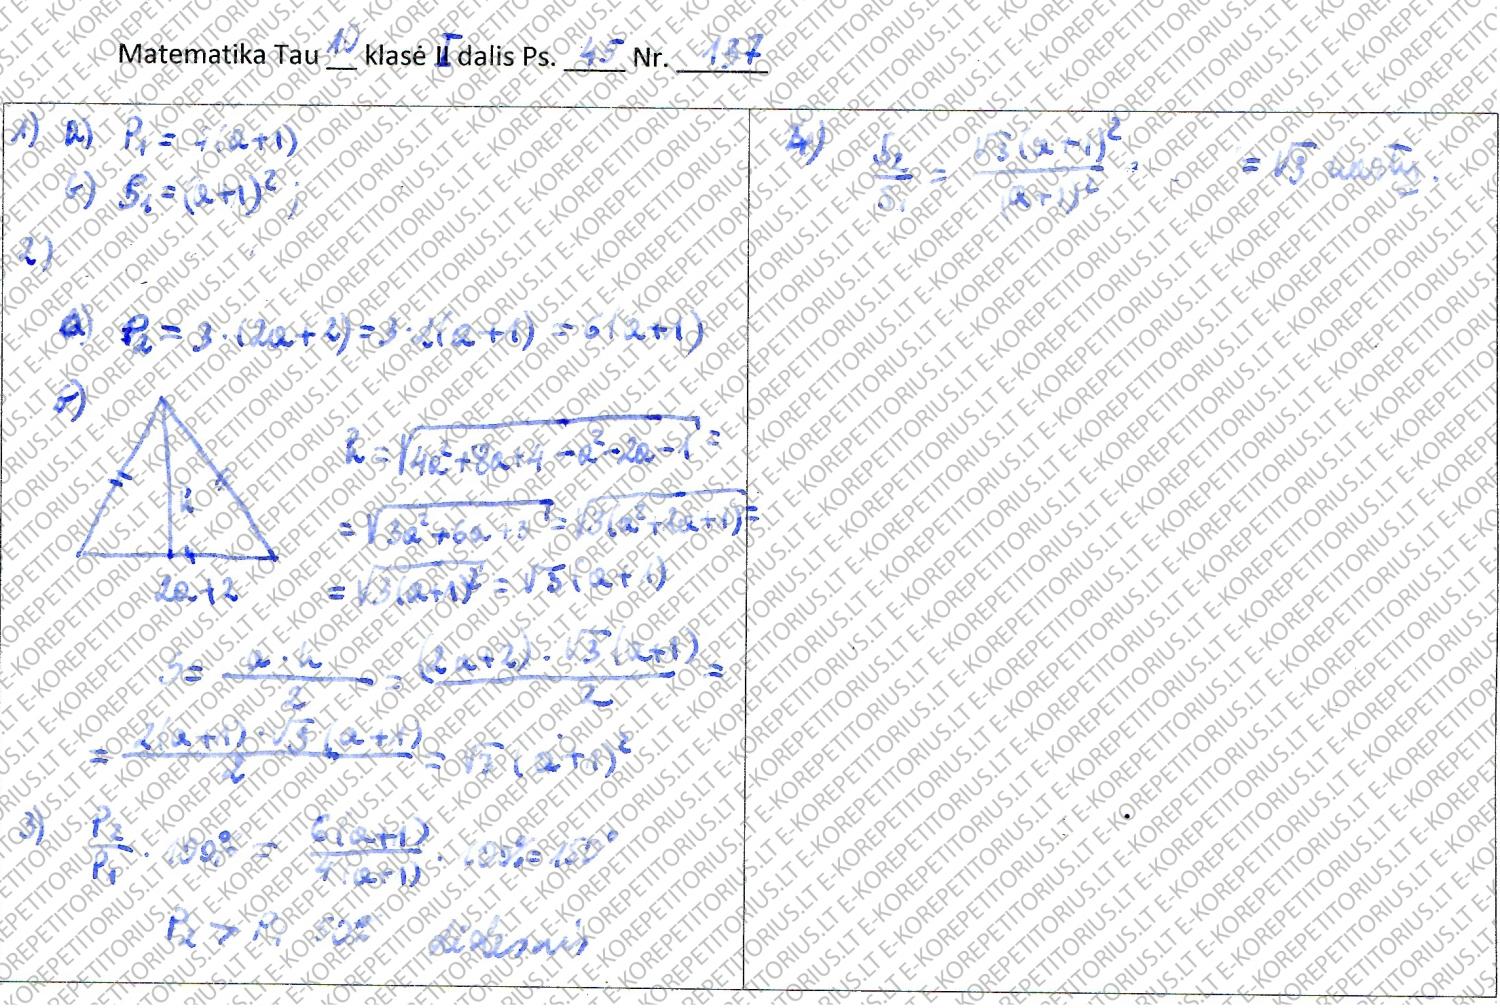 Matematika Tau 10 klasė II dalis Ps. 45 Nr. 137
1) a) P₁ = 4(a+1)
б) S₁ = (a+1)² ;
2)
a) P₂ = 3 · (2a+2) = 3 · 2(a+1) = 6(a+1)
б)
h = √(4a²+8a+4 −a²−2a−1) =
= √(3a²+6a+3) = √(3(a²+2a+1)) =
h
= √(3(a+1)²) = √3 (a+1)
2a+2
S = a·h/2 = (2a+2) · √3 (a+1)/2 =
= 2(a+1) · √3 (a+1)/2 = √3 (a+1)²
3) P₂/P₁ · 100% = 6(a+1)/4(a+1) · 100% = 150%
P₂ > P₁ 50% didesnis
4) S₂/S₁ = √3 (a+1)²/(a+1)² = √3 kartų.
E-KOREPETITORIUS.LT